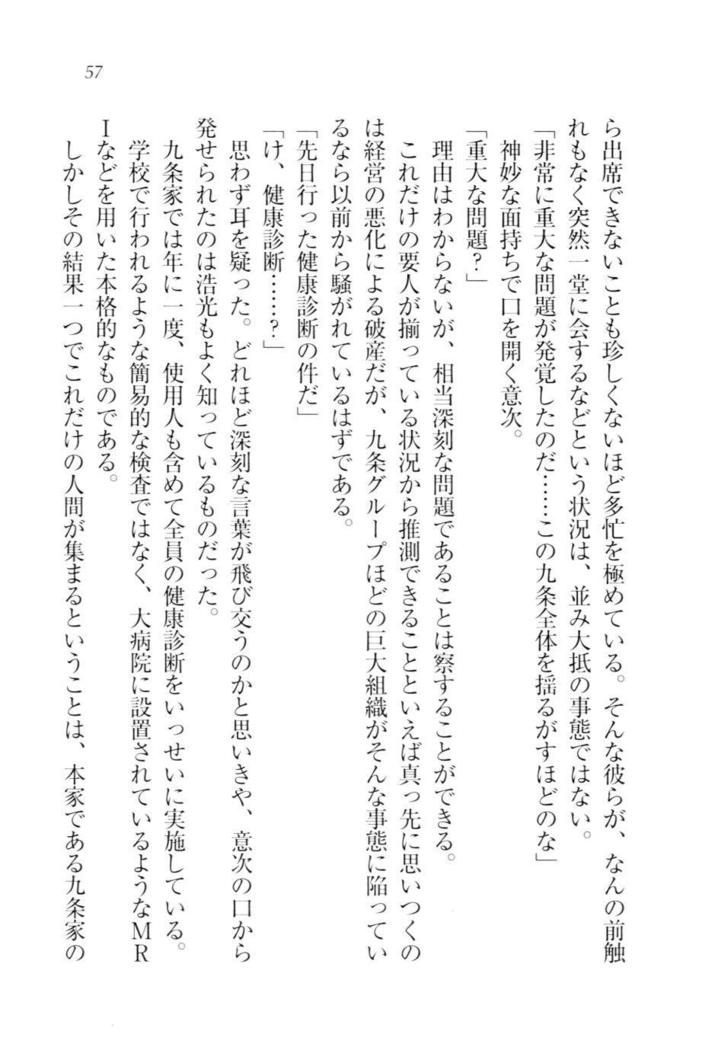 57
ら出席できないことも珍しくないほど多忙を極めている。そんな彼らが、なんの前触
れもなく突然一堂に会するなどという状況は、並み大抵の事態ではない。
「非常に重大な問題が発覚したのだ……この九条全体を揺るがすほどのな」
神妙な面持ちで口を開く意次。
「重大な問題？」
理由はわからないが、相当深刻な問題であることは察することができる。
これだけの要人が揃っている状況から推測できることといえば真っ先に思いつくの
は経営の悪化による破産だが、九条グループほどの巨大組織がそんな事態に陥ってい
るなら以前から騒がれているはずである。
「先日行った健康診断の件だ」
「け、健康診断……？」
思わず耳を疑った。どれほど深刻な言葉が飛び交うのかと思いきや、意次の口から
発せられたのは浩光もよく知っているものだった。
九条家では年に一度、使用人も含めて全員の健康診断をいっせいに実施している。
学校で行われるような簡易的な検査ではなく、大病院に設置されているようなＭＲ
Ｉなどを用いた本格的なものである。
しかしその結果一つでこれだけの人間が集まるということは、本家である九条家の